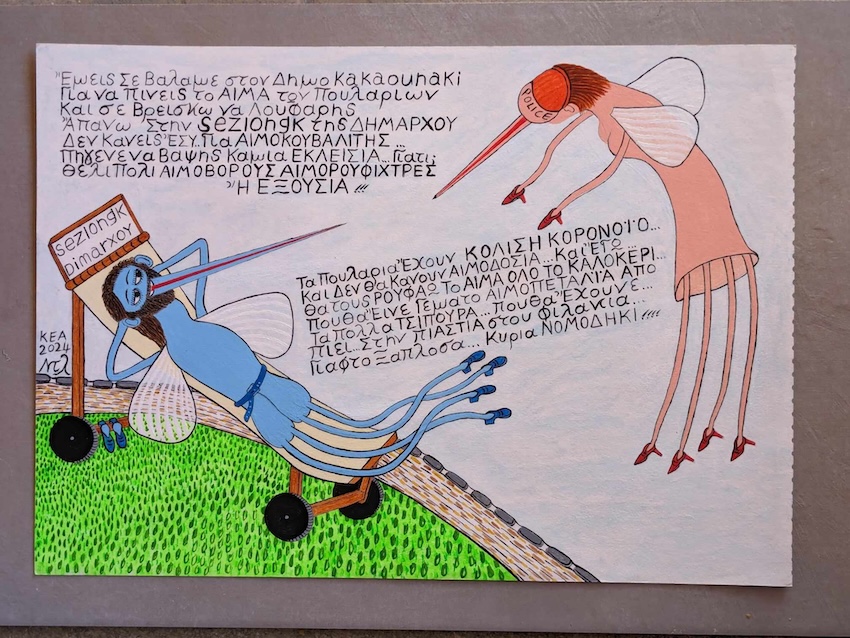 Έμεις Σε Βαλαμε στον Δημο Kakaounaki
Για να Πινεις το ΑΙΜΑ των Πουλαριων
Και σε Βρεισκω να Λουφαρης
Άπανω Στην sezlongk της ΔΗΜΑΡΧΟΥ
Δεν Κανεις Έσυ.. Για ΑΙΜΟΚΟΥΒΑΛΙΤΗΣ...
Πηγενε να Βαψης Καμια ΕΚΛΕΙΣΙΑ... Γιατι
Θελι Πολι ΑΙΜΟΒΟΡΟΥΣ ΑΙΜΟΡΟΥΦΙΧΤΡΕΣ
Ή ΕΞΟΥΣΙΑ !!!
POLICE
sezlongk
Dimarxoy
Τα Πουλαρια Έχουν ΚΟΛΙΣΗ ΚΟΡΟΝΟΪΟ...
Και ΔΕΝ Θα ΚΑΝΟΥΝ ΑΙΜΟΔΟΣΙΑ... Και ΕΓΩ...
Θα τους ΡΟΥΦΑΩ ΤΟ ΑΙΜΑ ΟΛΟ ΤΟ ΚΑΛΟΚΕΡΙ...
Που θα Έινε Γεματο ΑΙΜΟΠΕΤΑΛΙΑ ΑΠΟ
Τα Πολλα ΤΣΙΠΟΥΡΑ... που θα Έχουνε
ΠΙΕΙ... Στην ΠΙΑΣΤΙΑ στου ΦΙΛΑΝΙΑ...
Γιαφτο Ξαπλοσα... Κυρια ΝΟΜΟΔΗΚΙ !!!!
ΚΕΑ
2024